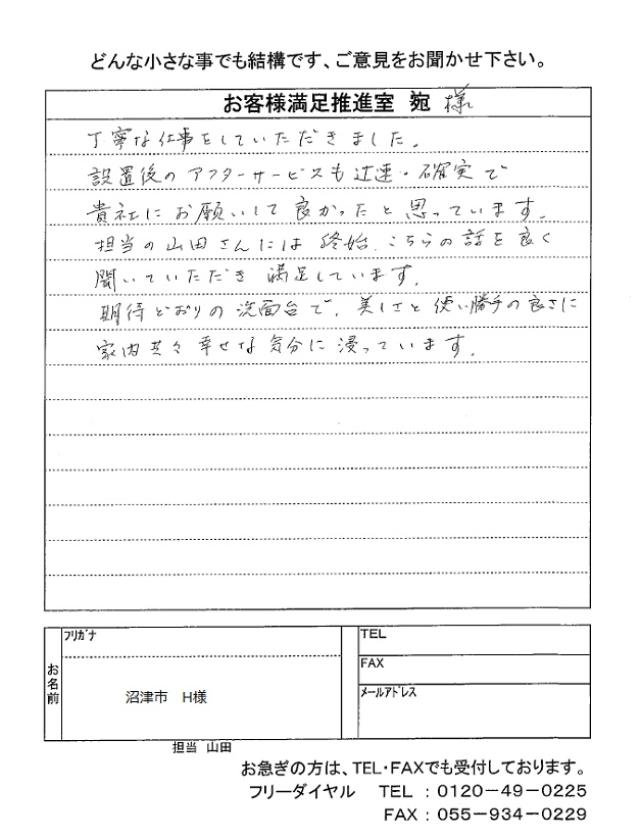 どんな小さな事でも結構です、ご意見をお聞かせ下さい。
お客様満足推進室 宛 様
丁寧な仕事をしていただきました。
設置後のアフターサービスも迅速・確実で
貴社にお願いして良かったと思っています。
担当の山田さんには終始、こちらの話を良く
聞いていただき 満足しています。
期待どおりの洗面台で、美しさと使い勝手の良さに
家内共々幸せな気分に浸っています。
フリガナ
お名前
沼津市 H様
TEL
FAX
メールアドレス
担当 山田
お急ぎの方は、TEL・FAXでも受付しております。
フリーダイヤル TEL : 0120-49-0225
FAX : 055-934-0229